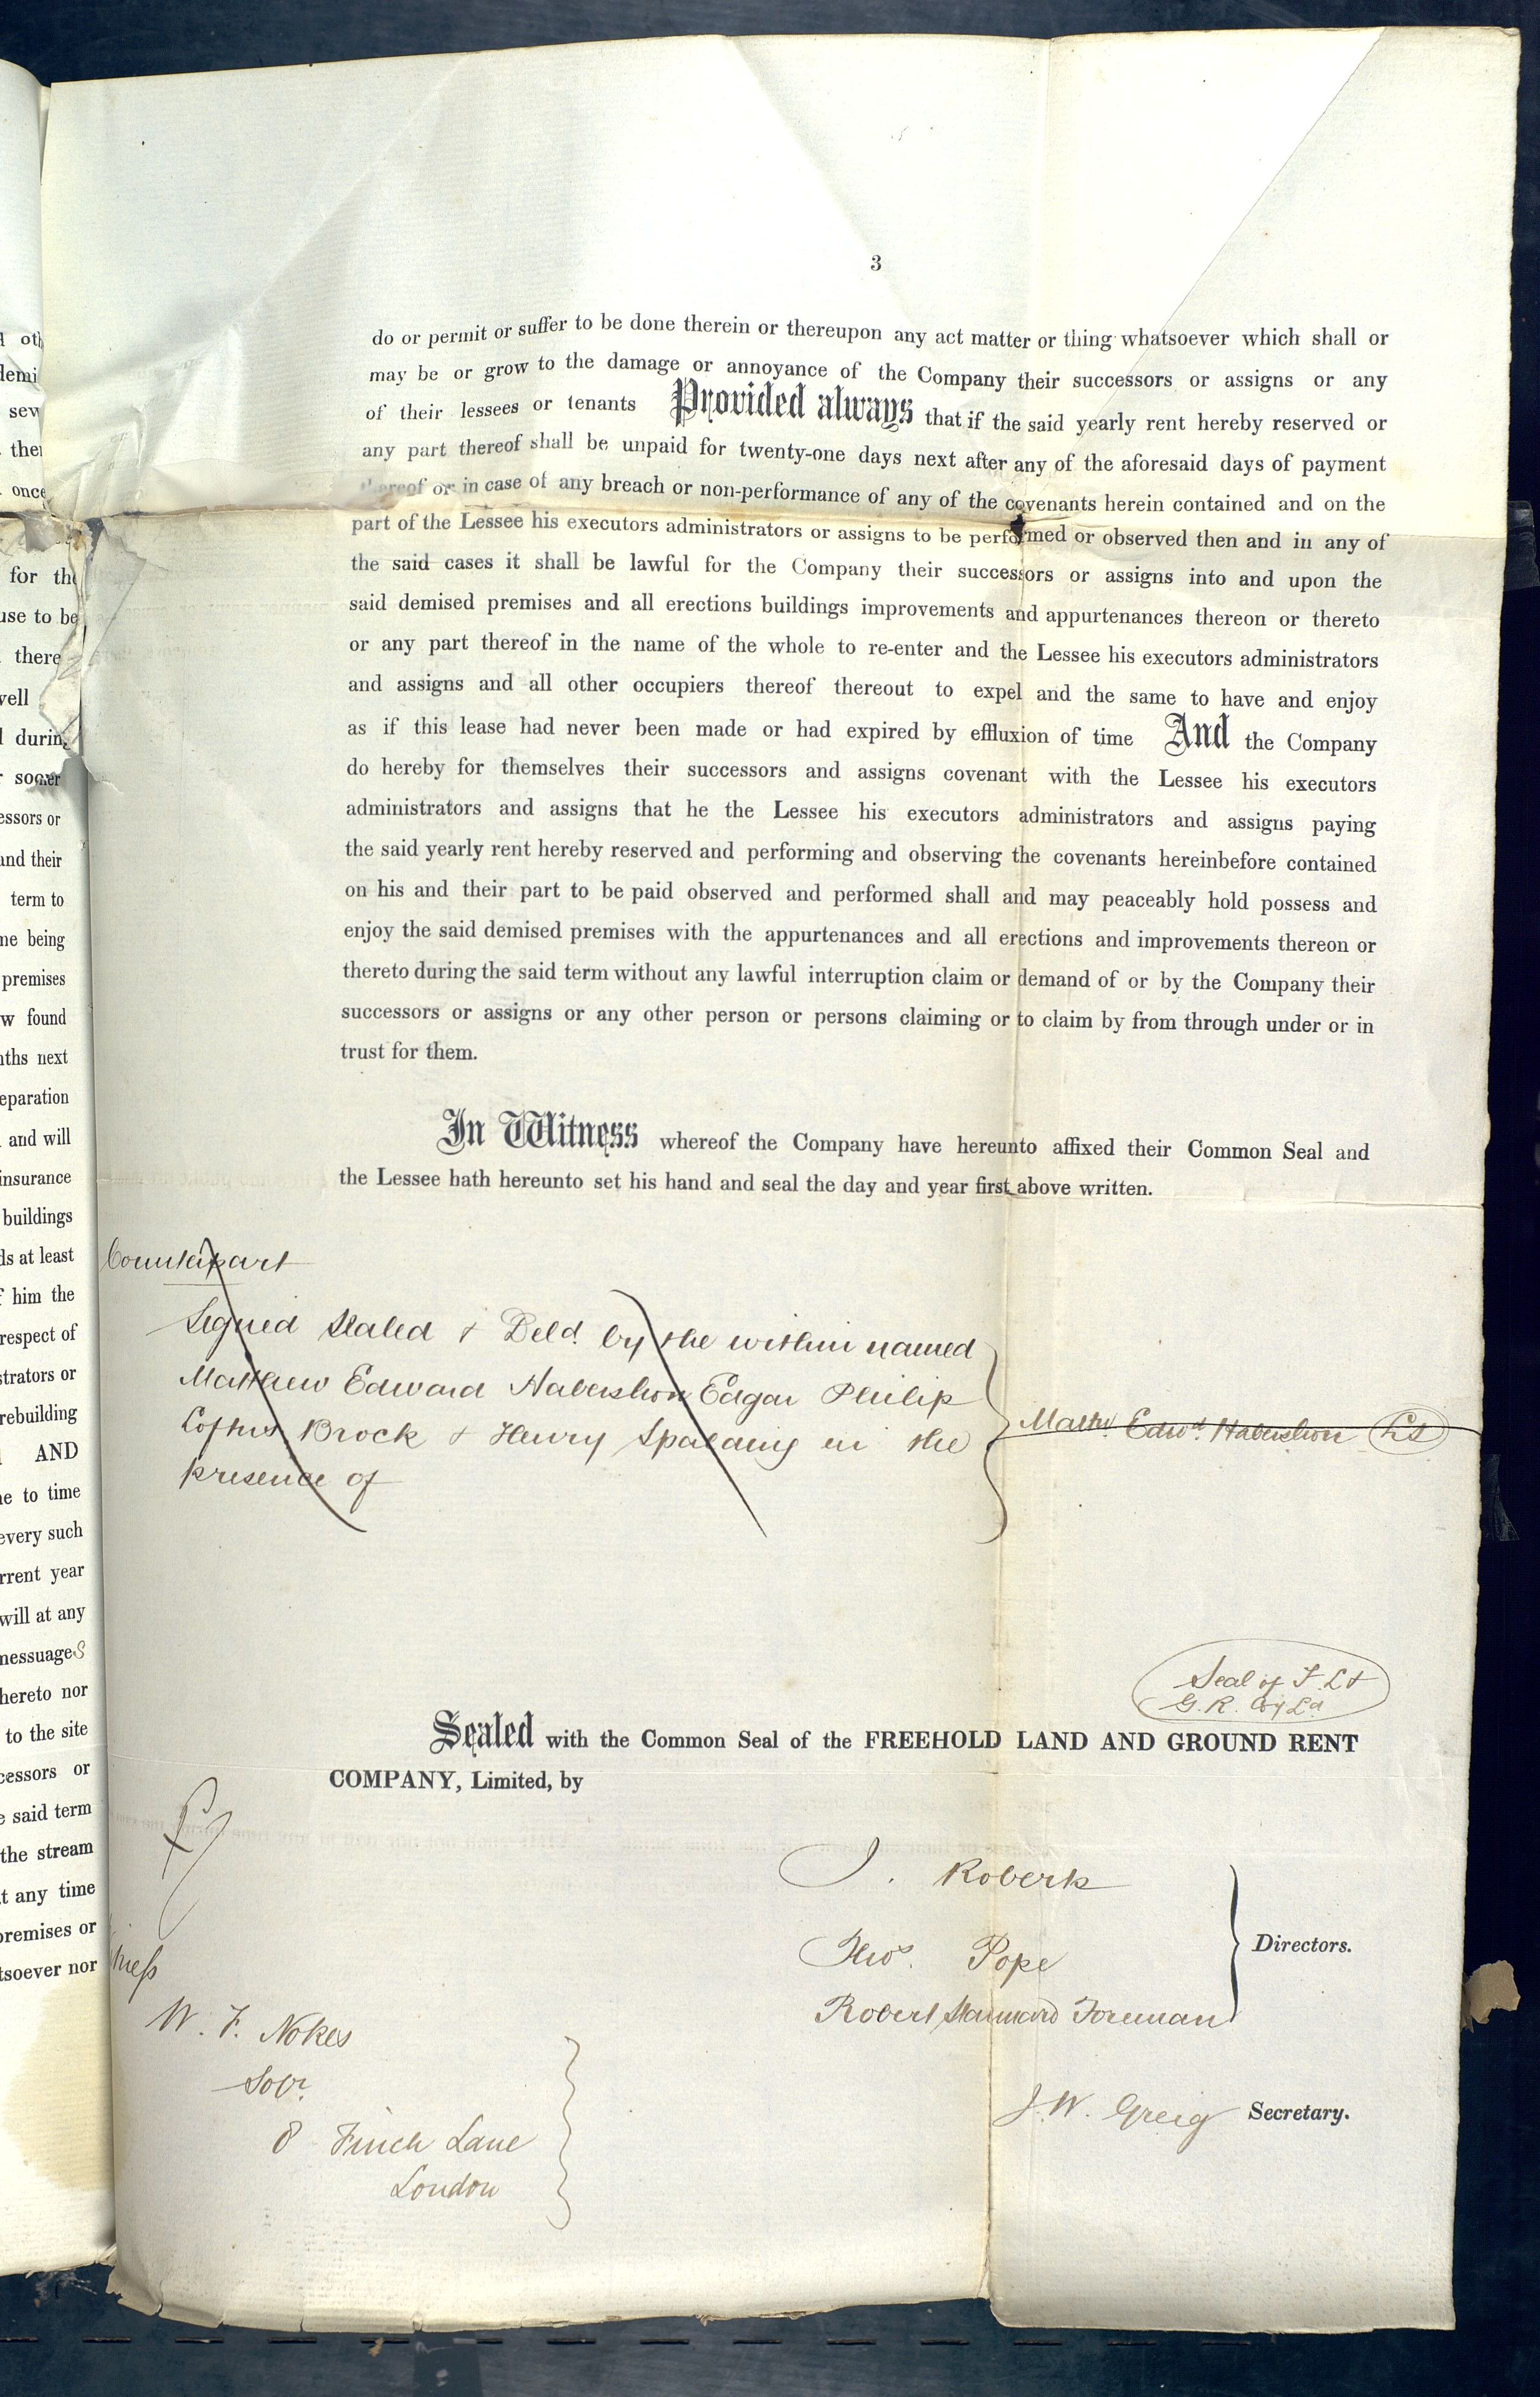 3
do or permit or suffer to be done therein or thereupon any act matter or thing whatsoever which shall or
may be or grow to the damage or annoyance of the Company their successors or assigns or any
of their lessees or tenants Provided always that if the said yearly rent hereby reserved or
any part thereof shall be unpaid for twenty-one days next after any of the aforesaid days of payment
thereof or in case of any breach or non-performance of any of the covenants herein contained and on the
part of the Lessee his executors administrators or assigns to be performed or observed then and in any of
the said cases it shall be lawful for the Company their successors or assigns into and upon the
said demised premises and all erections buildings improvements and appurtenances thereon or thereto
or any part thereof in the name of the whole to re-enter and the Lessee his executors administrators
and assigns and all other occupiers thereof thereout to expel and the same to have and enjoy
as if this lease had never been made or had expired by effluxion of time And the Company
do hereby for themselves their successors and assigns covenant with the Lessee his executors
administrators and assigns that he the Lessee his executors administrators and assigns paying
the said yearly rent hereby reserved and performing and observing the covenants hereinbefore contained
on his and their part to be paid observed and performed shall and may peaceably hold possess and
enjoy the said demised premises with the appurtenances and all erections and improvements thereon or
thereto during the said term without any lawful interruption claim or demand of or by the Company their
successors or assigns or any other person or persons claiming or to claim by from through under or in
trust for them.
In Witness whereof the Company have hereunto affixed their Common Seal and
the Lessee hath hereunto set his hand and seal the day and year first above written.
Counterpart
Signed Sealed & Deld. by the within named
Matthew Edward Habershon Edgar Philip
Loftus Brock & Henry Spalding in the
presence of
Matw. Edwd. Habershon LS
Seal of F. L &
G. R. Coy Ld
Sealed with the Common Seal of the FREEHOLD LAND AND GROUND RENT
COMPANY, Limited, by
J. Roberts
Thos. Pope
Robert Stannard Foreman
Directors.
J. W. Greig Secretary.
W. F. Nokes
Solr.
8 Finch Lane
London
for the
use to be
there
well
during
sooner
essors or
and their
term to
me being
premises
found
next
eparation
and will
insurance
buildings
at least
him the
respect of
strators or
rebuilding
AND
to time
every such
rrent year
will at any
messuages
hereto nor
to the site
cessors or
said term
the stream
at any time
premises or
tsoever nor